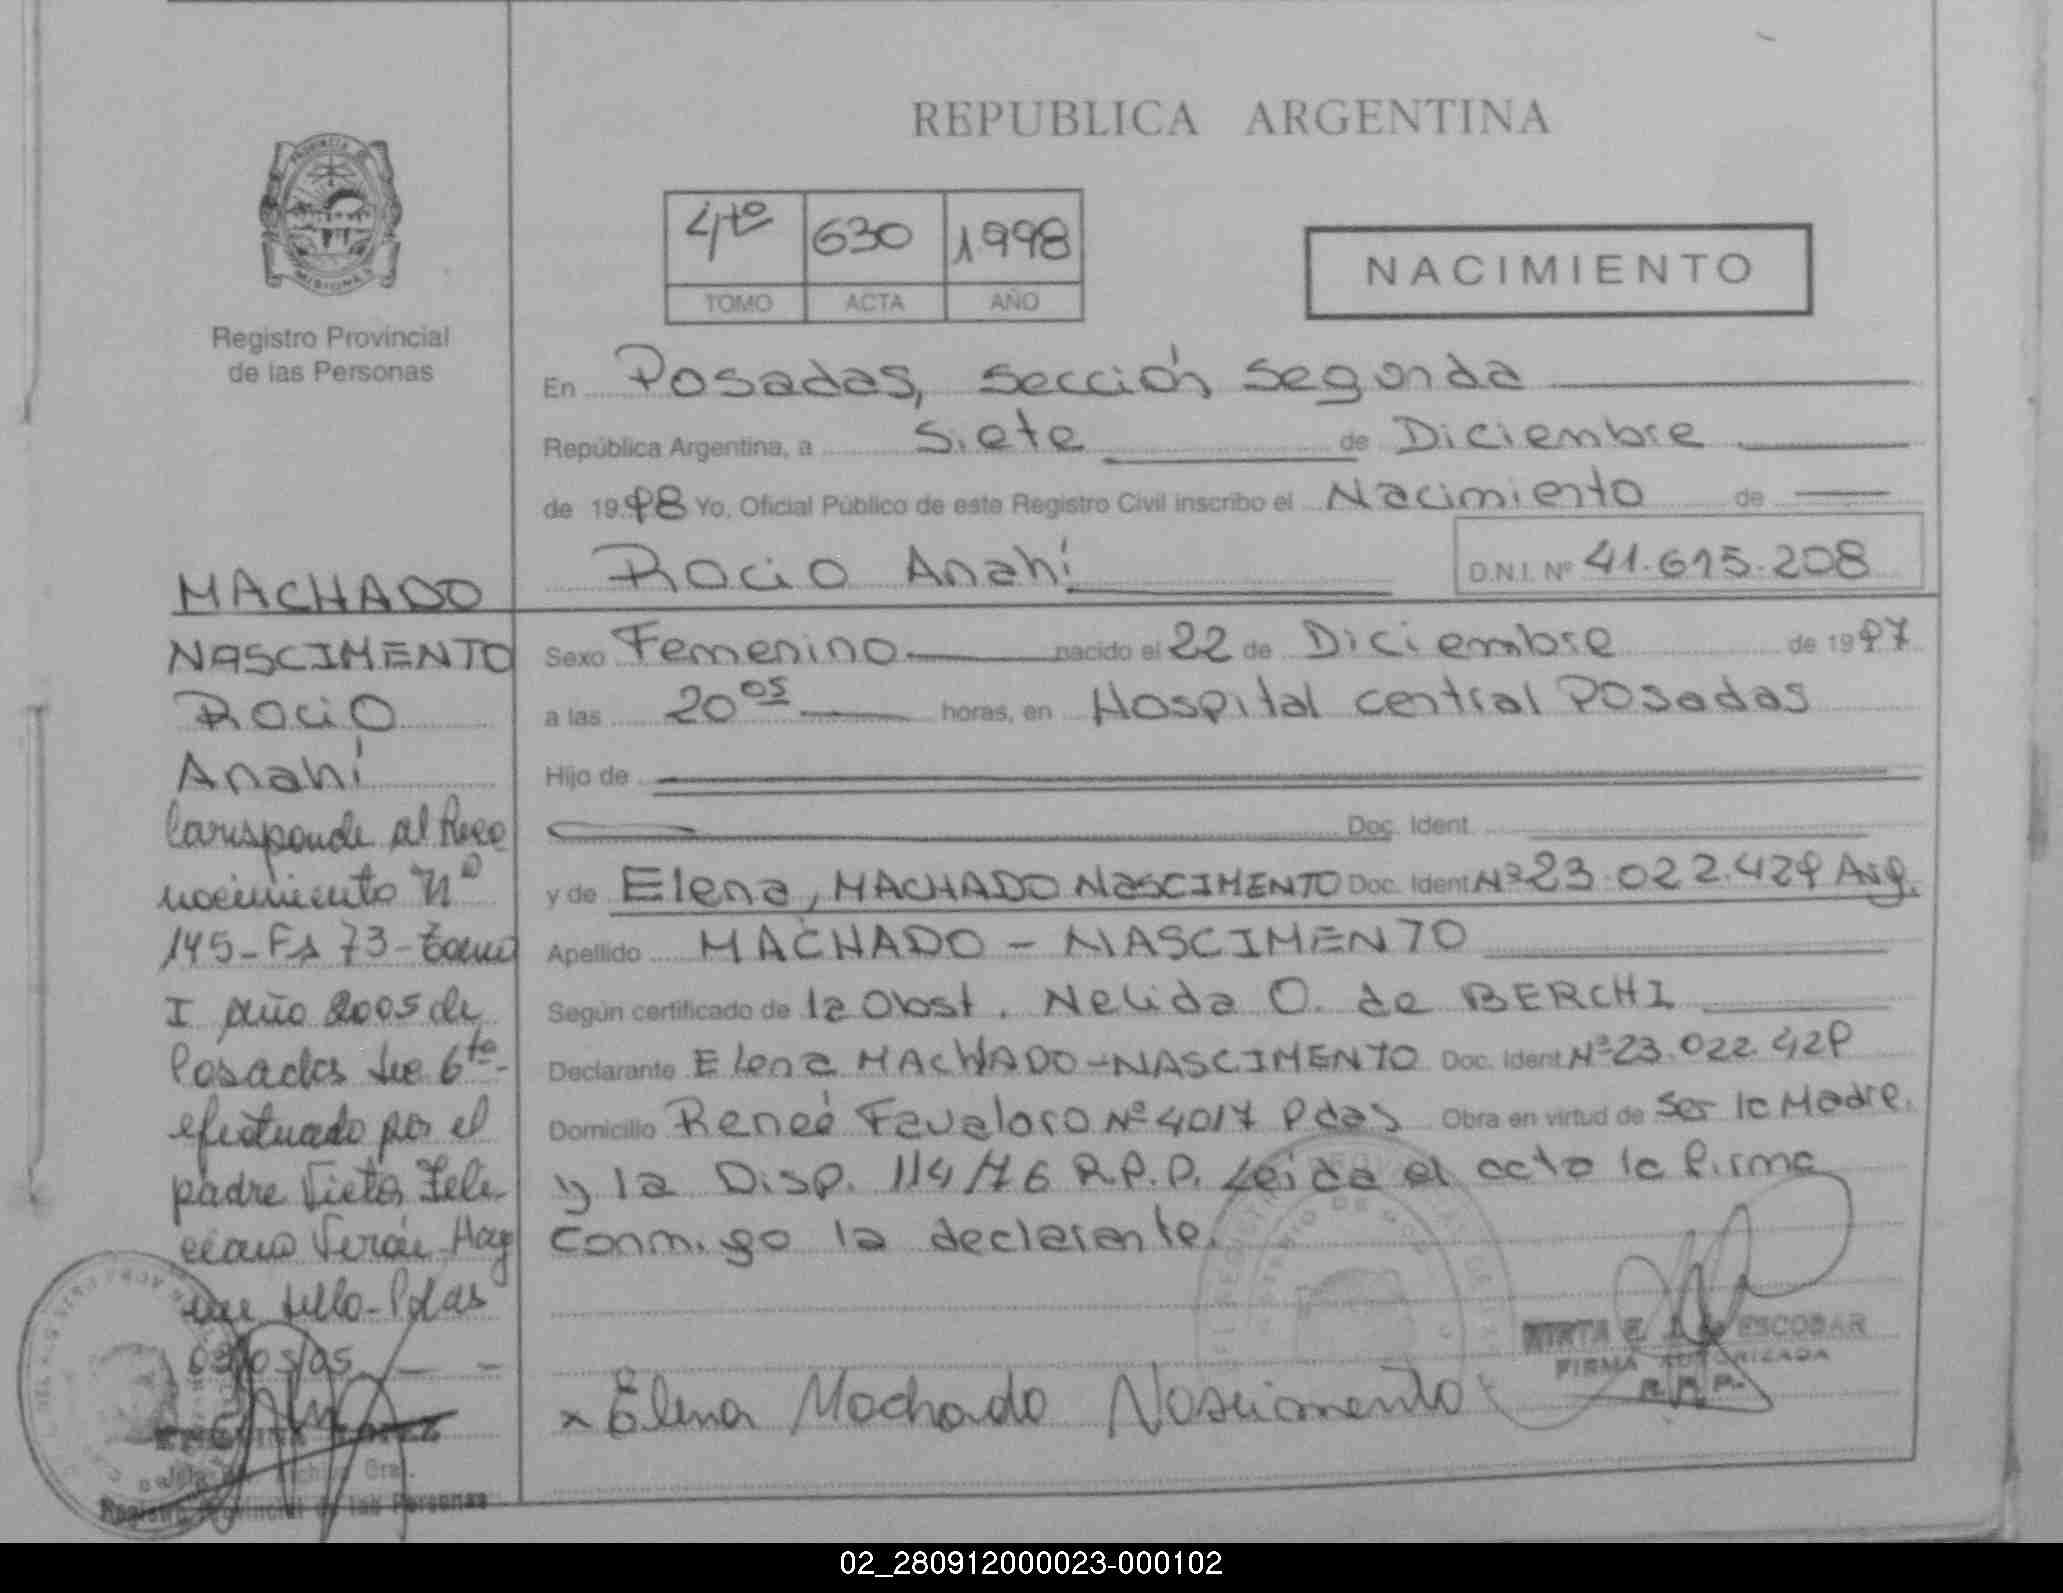 REPUBLICA ARGENTINA
PROVINCIA DE
MISIONES
Registro Provincial
de las Personas
4to 630 1998
TOMO ACTA AÑO
NACIMIENTO
En Posadas, sección segunda
República Argentina, a siete de Diciembre
de 1998 Yo, Oficial Público de este Registro Civil inscribo el Nacimiento de
Rocio Anahí D.N.I. Nº 41.615.208
Sexo Femenino nacido el 22 de Diciembre de 1997
a las 20 05 horas, en Hospital central Posadas
Hijo de
Doc. Ident.
y de Elena, MACHADO NASCIMENTO Doc. Ident. Nº 23.022.429 Arg.
Apellido MACHADO - NASCIMENTO
Según certificado de la Obst. Nelida O. de BERCHI
Declarante Elena MACHADO-NASCIMENTO Doc. Ident. Nº 23.022.429
Domicilio Reneé Favaloro Nº 4017 Pdas Obra en virtud de ser la Madre.
y la Disp. 114/76 R.P.P. Leida el acta la firma
conmigo la declarante.
x Elena Machado Nascimento
ESCOBAR
FIRMA AUTORIZADA
R.P.P.
MACHADO
NASCIMENTO
Rocio
Anahí
Corresponde al Reco
nocimiento Nº
145-Fs 73-Tomo
I año 2005 de
Posadas Sec 6ta-
efectuado por el
padre Victor Feli-
ciano Verón-Hay
un sello-Pdas
03/05/05
Registro Provincial de las Personas
02_280912000023-000102